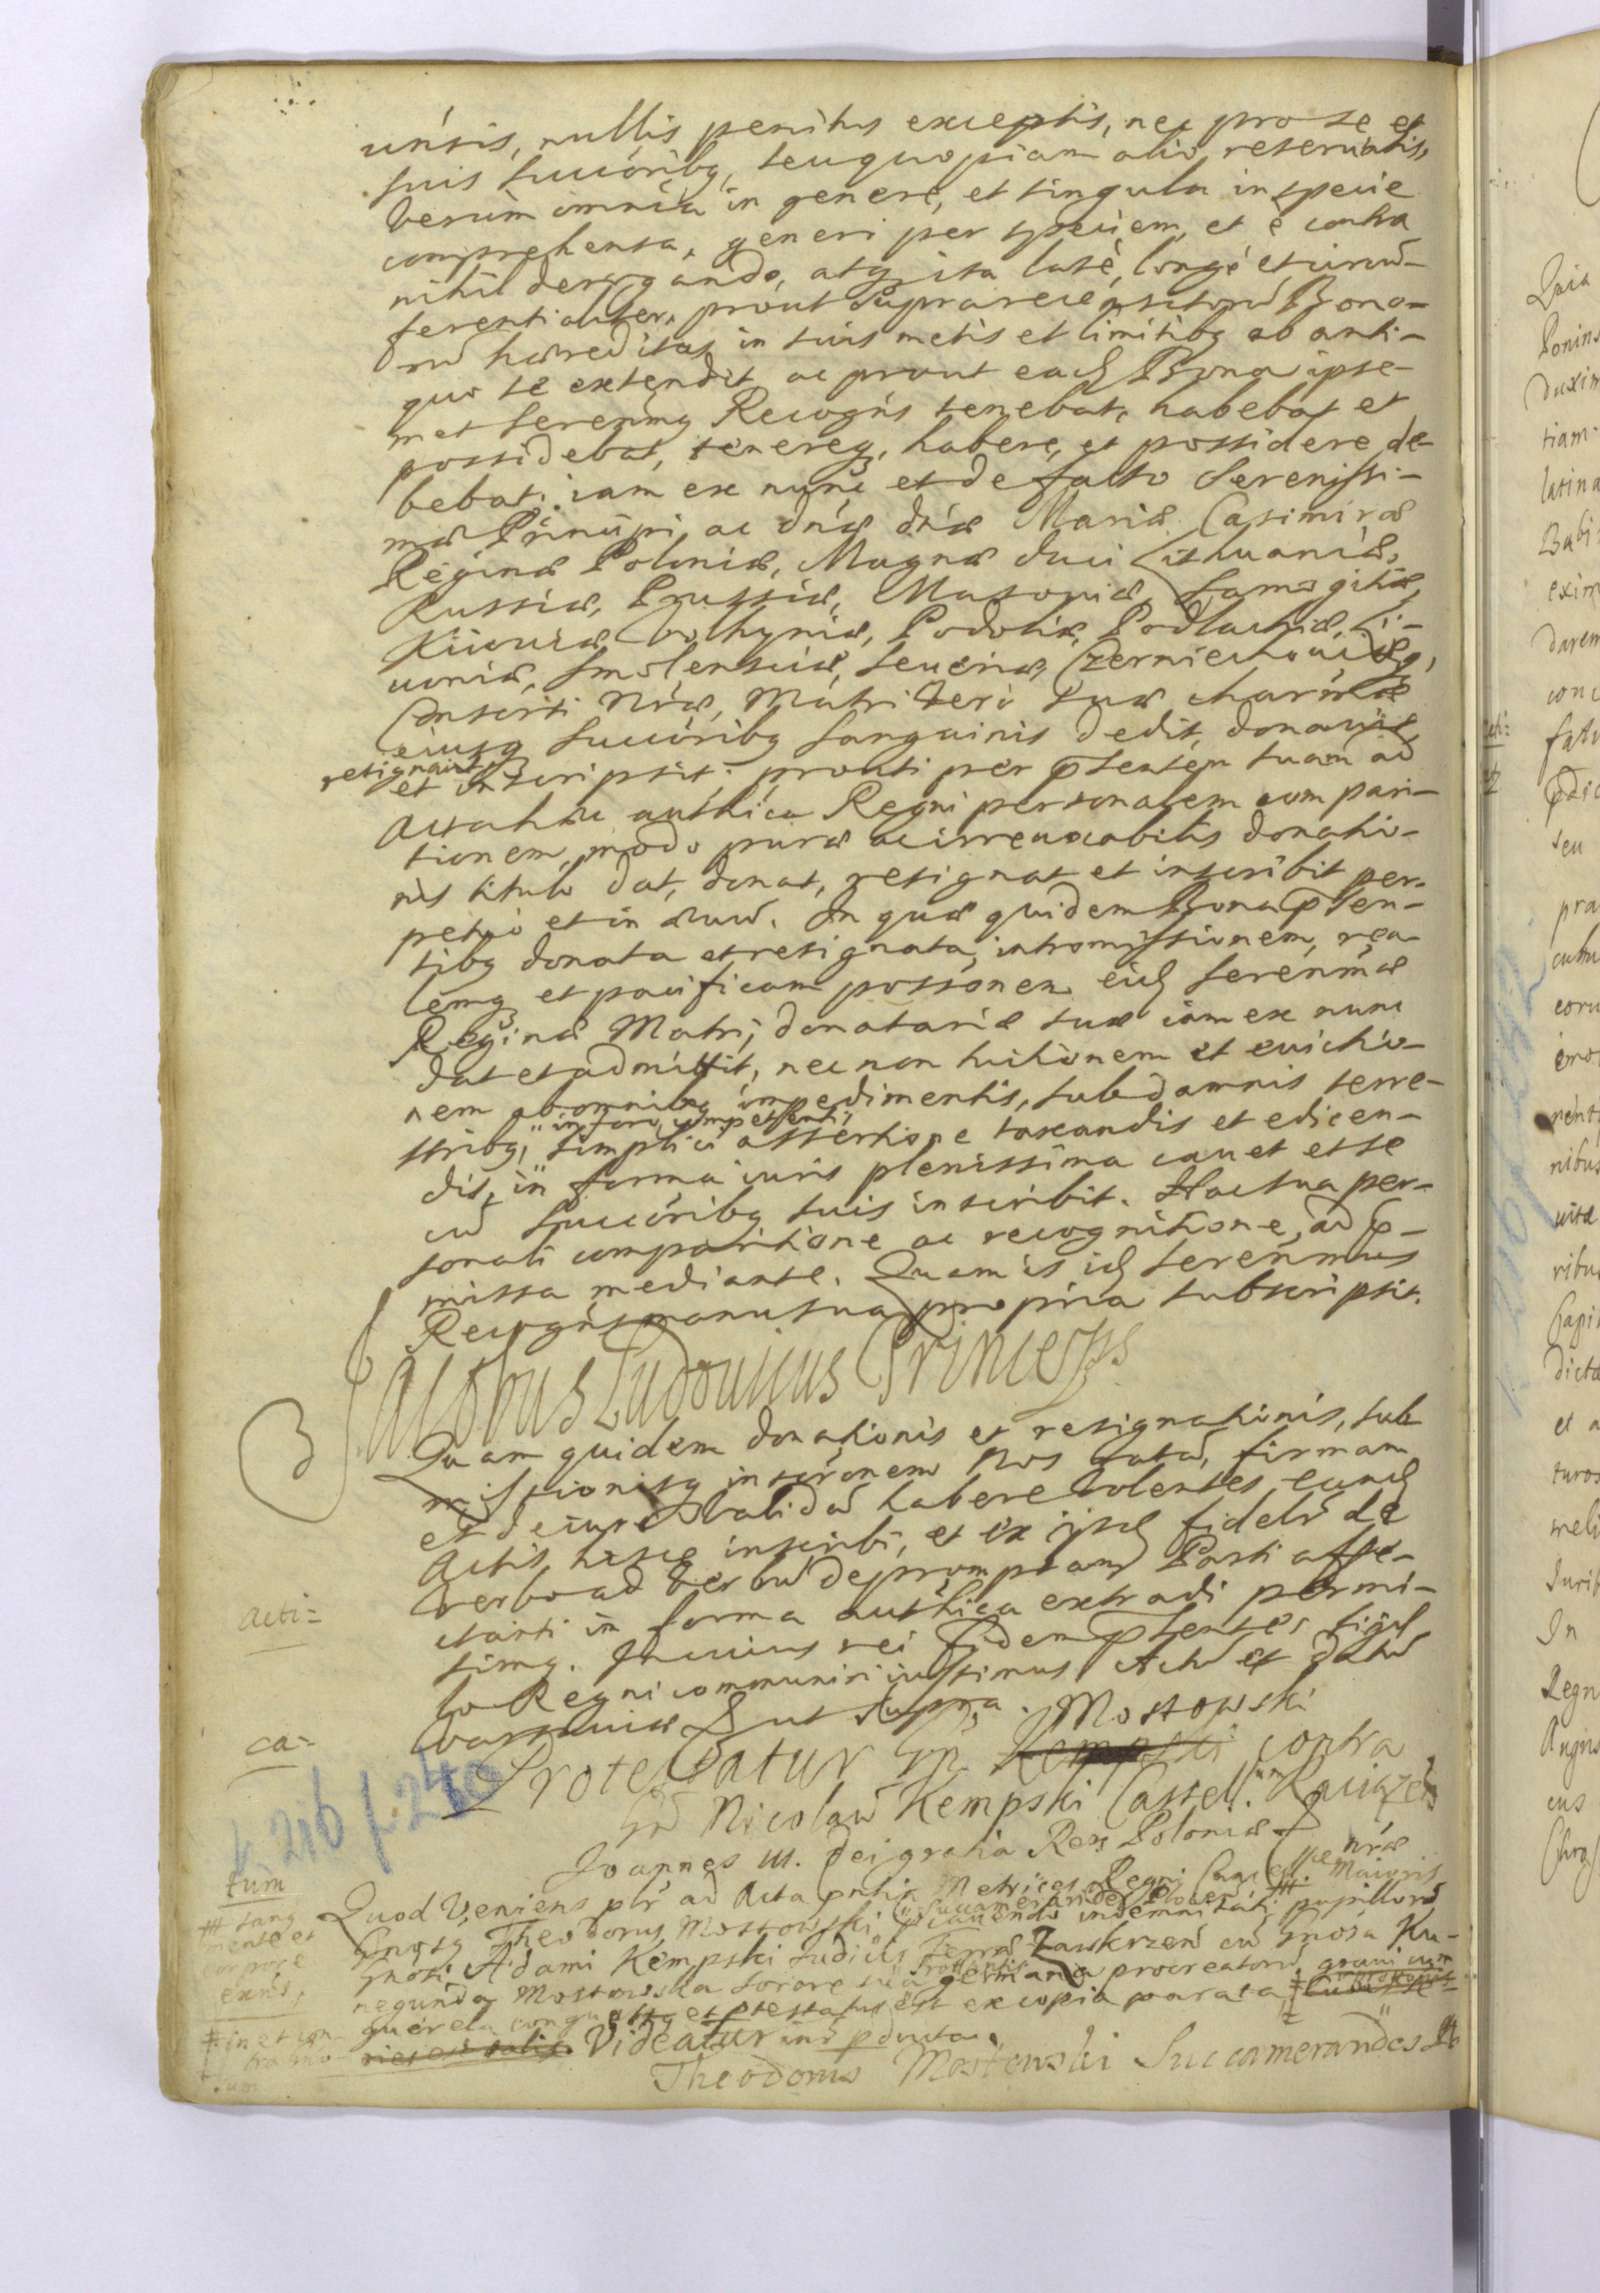 unsis, nullis penitus exceptis, nec pro se et
suis succoribq, seu quopiam alio reservatis,
verum omnia in genere, et singula in specie
comprehensa, generi per speciem, et e contra
nihil derogando, atq ita late, longe et circum-
ferentialiter, prout suprarecensitorū Bono-
rū hæreditas in suis metis et limitibq ab anti-
quo se extendit ac prout ead Bona ipse-
met serenmq Recogns tenebat, habebat et
possidebat, tenereq, habere, et possidere de-
bebat: iam ex nunc et de facto Serenissi-
mæ Principi ac dnæ dnæ Mariæ Casimiræ
Reginæ Poloniæ, Magnæ duci Lithuaniæ,
Russiæ, Prussiæ, Masoviæ, Samogitiæ,
Kiioviæ, Volhyniæ, Podoliæ, Podlachiæ, Li-
voniæ, Smolensciæ, Severiæ, Czerniechoviæq,
Consorti Nræ, Matri vero suæ charmæ
eiusq succoribq sanguinis dedit, donavit,
resignavitq
et inscripsit: prouti per pntem suam ad
Acta hæc authica Regni personalem compari-
tionem, modo puræ ac irrevocabilis donatio-
nis titulo dat, donat, resignat et inscribit per-
petuo et in ævū. In quæ quidem Bona pnen-
tibq donata et resignata, intromissionem, rea-
lemq et pacificam possonem eid serenmæ
Reginæ Matri, donatariæ suæ iam ex nunc
dat et admittit, nec non tuitionem et evictio-
nem ab omnibq impedimentis, sub damnis terre-
in foro competenti
stribq, simplici assertione taxandis et edicen-
dis, in forma iuris plenissima cavet et se
cū succoribq suis inscribit. Hac sua per-
sonali comparitione ac recognitione, ad p-
missa mediante. Quam is id serenmus
Recogns manu sua propria subscripsit.
Jacobus Ludovicus Princeps
Quam quidem donationis et resignationis, sub
missionisq inscronem Nos ratā, firmam
et de iure validā habere volentes eand
Actis hisce inscribi, et ex iisd fideli de
verbo ad verbū depromptam Parti affe-
Acti-
ctanti in forma authica extradi permi-
simq. In cuius rei fidem pntes sigil-
lo Regni communiri iussimus Actū et datū
ca-
Varsaviæ ut supra. Mostowski
Protestatur Gn Kempski contra
Gn Nicolaū Kempski Castell. Raciązen
216 f. 240
Joannes III. Dei gratia Rex Poloniæ
tum
Quod veniens plr ad Acta pntia Metrices Regni Cancell nræ Maioris
Gnosq Theodorus Mostowski Succamerarides Plocen cavendo indemnitati pupillorū
Gnosi Adami Kempski Iudicis Terræ Zawkrzen cū Gnosa Ku-
negunda Mostowska sorore sua germana procreatorū gravi cum
querela conquestq et ptestatus est ex copia parata
Videatur inf pducta.
Theodorus Mostowski Succamerandes